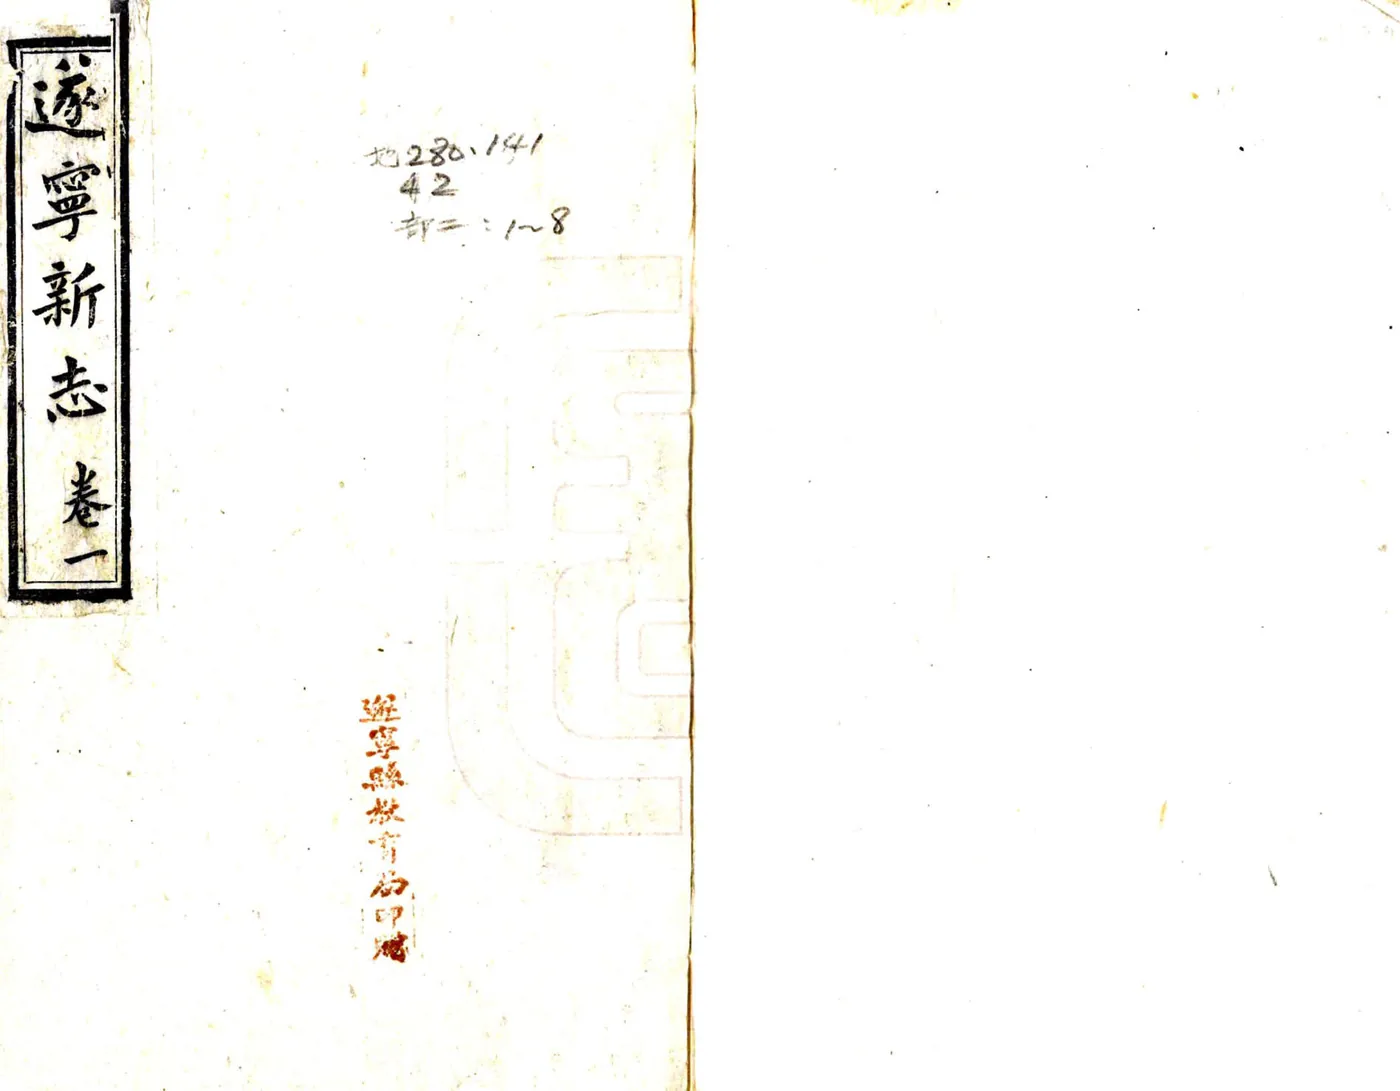 遂寧新志 卷一
地280.141
42
部二:1~8
遂寧縣教育局印贈